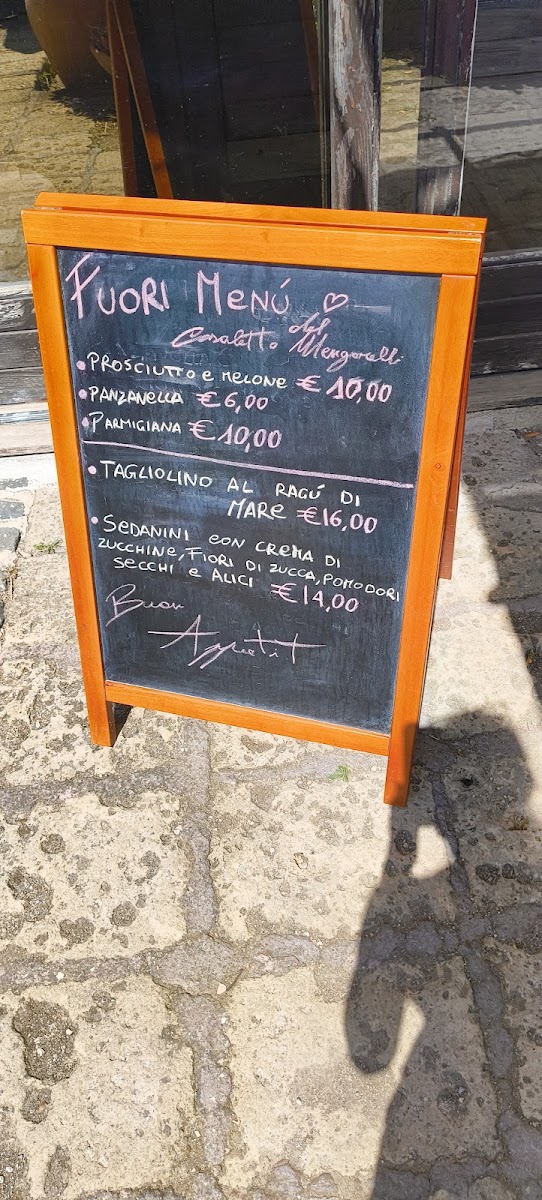 FUORI MENÚ
Casaletto del Mengarelli
PROSCIUTTO e MELONE €10,00
PANZANELLA €6,00
PARMIGIANA €10,00
TAGLIOLINO AL RAGÚ DI
MARE €16,00
SEDANINI CON CREMA DI
ZUCCHINE, FIORI DI ZUCCA, POMODORI
SECCHI e ALICI €14,00
Buon
Appetit